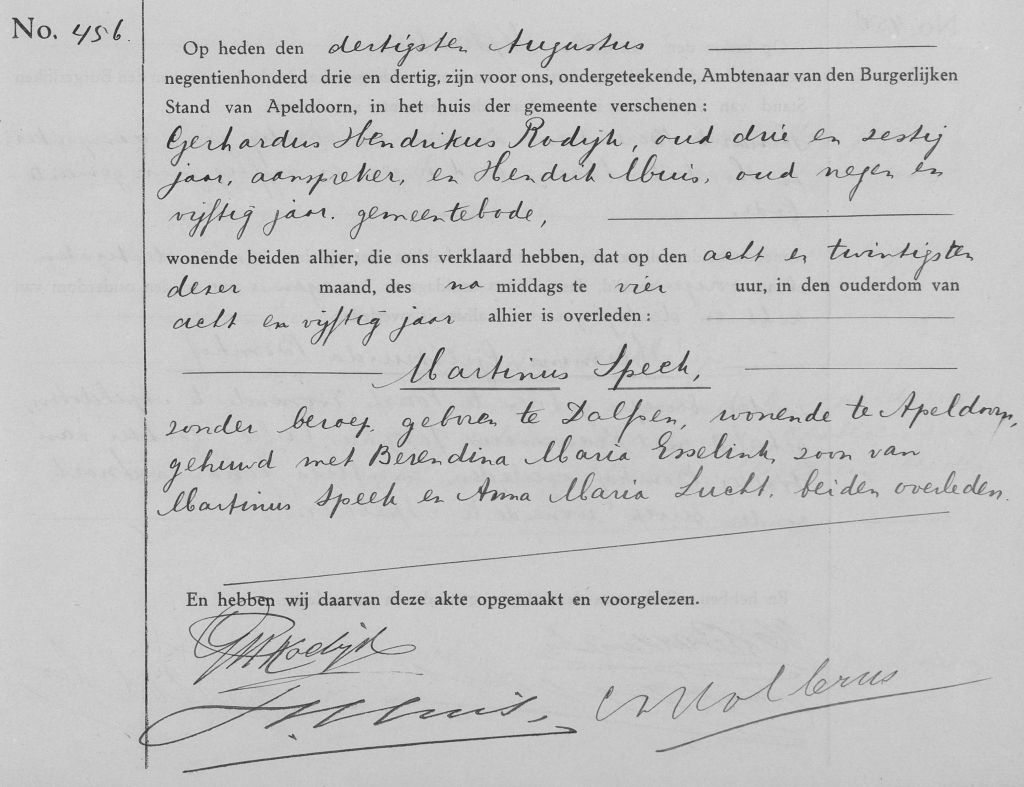 No. 456.
Op heden den dertigsten Augustus
negentienhonderd drie en dertig, zijn voor ons, ondergeteekende, Ambtenaar van den Burgerlijken
Stand van Apeldoorn, in het huis der gemeente verschenen:
Gerhardus Hendrikus Rodijk, oud drie en zestig
jaar, aanspreker, en Hendrik Muis, oud negen en
vijftig jaar. gemeentebode,
wonende beiden alhier, die ons verklaard hebben, dat op den acht en twintigsten
dezer maand, des na middags te vier uur, in den ouderdom van
acht en vijftig jaar alhier is overleden:
Martinus Speek,
zonder beroep. geboren te Dalfsen, wonende te Apeldoorn,
gehuwd met Berendina Maria Esselink, zoon van
Martinus Speek en Anna Maria Lucht. beiden overleden.
En hebben wij daarvan deze akte opgemaakt en voorgelezen.
GHRodijk
H. Muis.